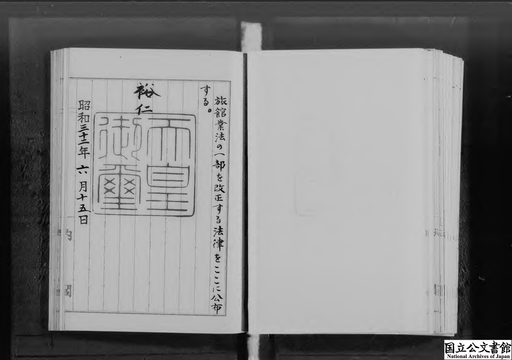 旅館業法の一部を改正する法律をここに公布
する。
裕仁
天皇
御璽
昭和三十二年六月十五日
内閣
国立公文書館
National Archives of Japan